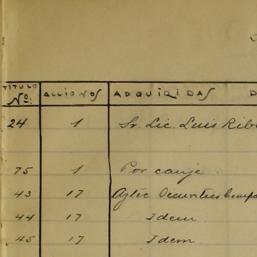 TITULO No. ACCIONES ADQUIRIDAS D
24 1 Sr. Lic. Luis Rib
75 1 Por canje
43 17 Aztec Securities Compa
44 17 Idem
45 17 Idem